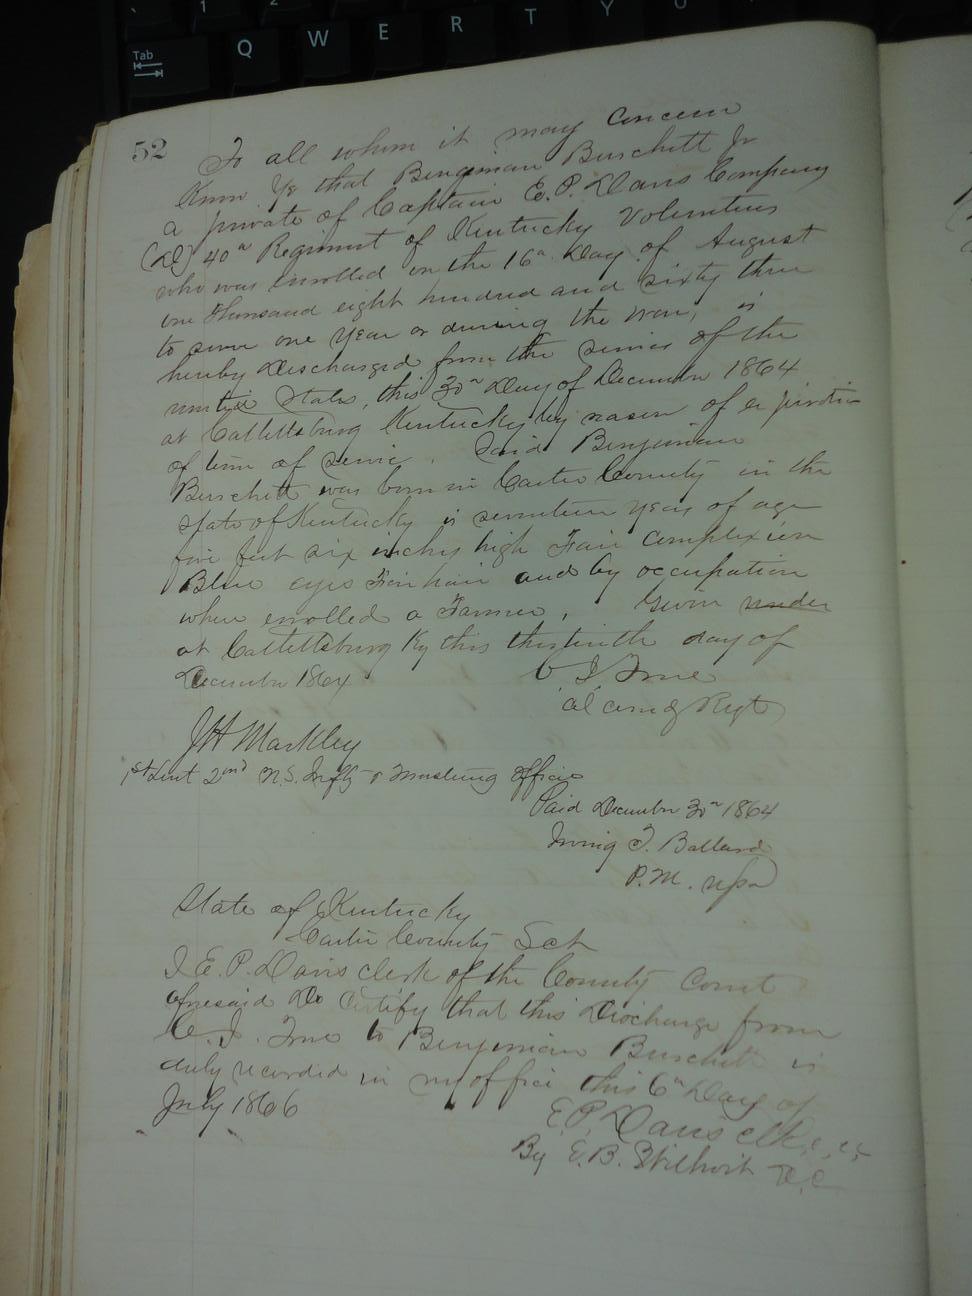 ` 1 2
Tab Q W E R T Y U
52
To all whom it may Concern
Know Ye that Benjiman Burchett Jr
a private of Captain E. P. Davis Company
(D) 40th Regiment of Kentucky Volunteers
who was enrolled on the 16th Day of August
one Thousand eight hundred and sixty three
to serve one Year or during the war, is
hereby Discharged from the service of the
united States, this 30th Day of December 1864
at Catlettsburg Kentucky by reason of expiration
of term of service. Said Benjiman
Burchett was born in Carter County in the
State of Kentucky is seventeen years of age
five feet six inches high Fair Complexion
Blue eyes Fair hair and by occupation
when enrolled a Farmer, Given under
at Catlettsburg Ky this thirtieth day of
December 1864 C J True
Col comdg Regt
J H Markley
1st Lieut 2nd Infty & Mustering Officer
Paid December 30th 1864
Irving T. Ballard
P.M. USA
State of Kentucky
Carter County Sct
I E. P. Davis clerk of the County Court
aforesaid Do Certify that this Discharge from
C. J. True to Benjiman Burchett is
duly recorded in my office this 6th Day of
July 1866
E P Davis clk
By E. B. Wilhoit D. C.